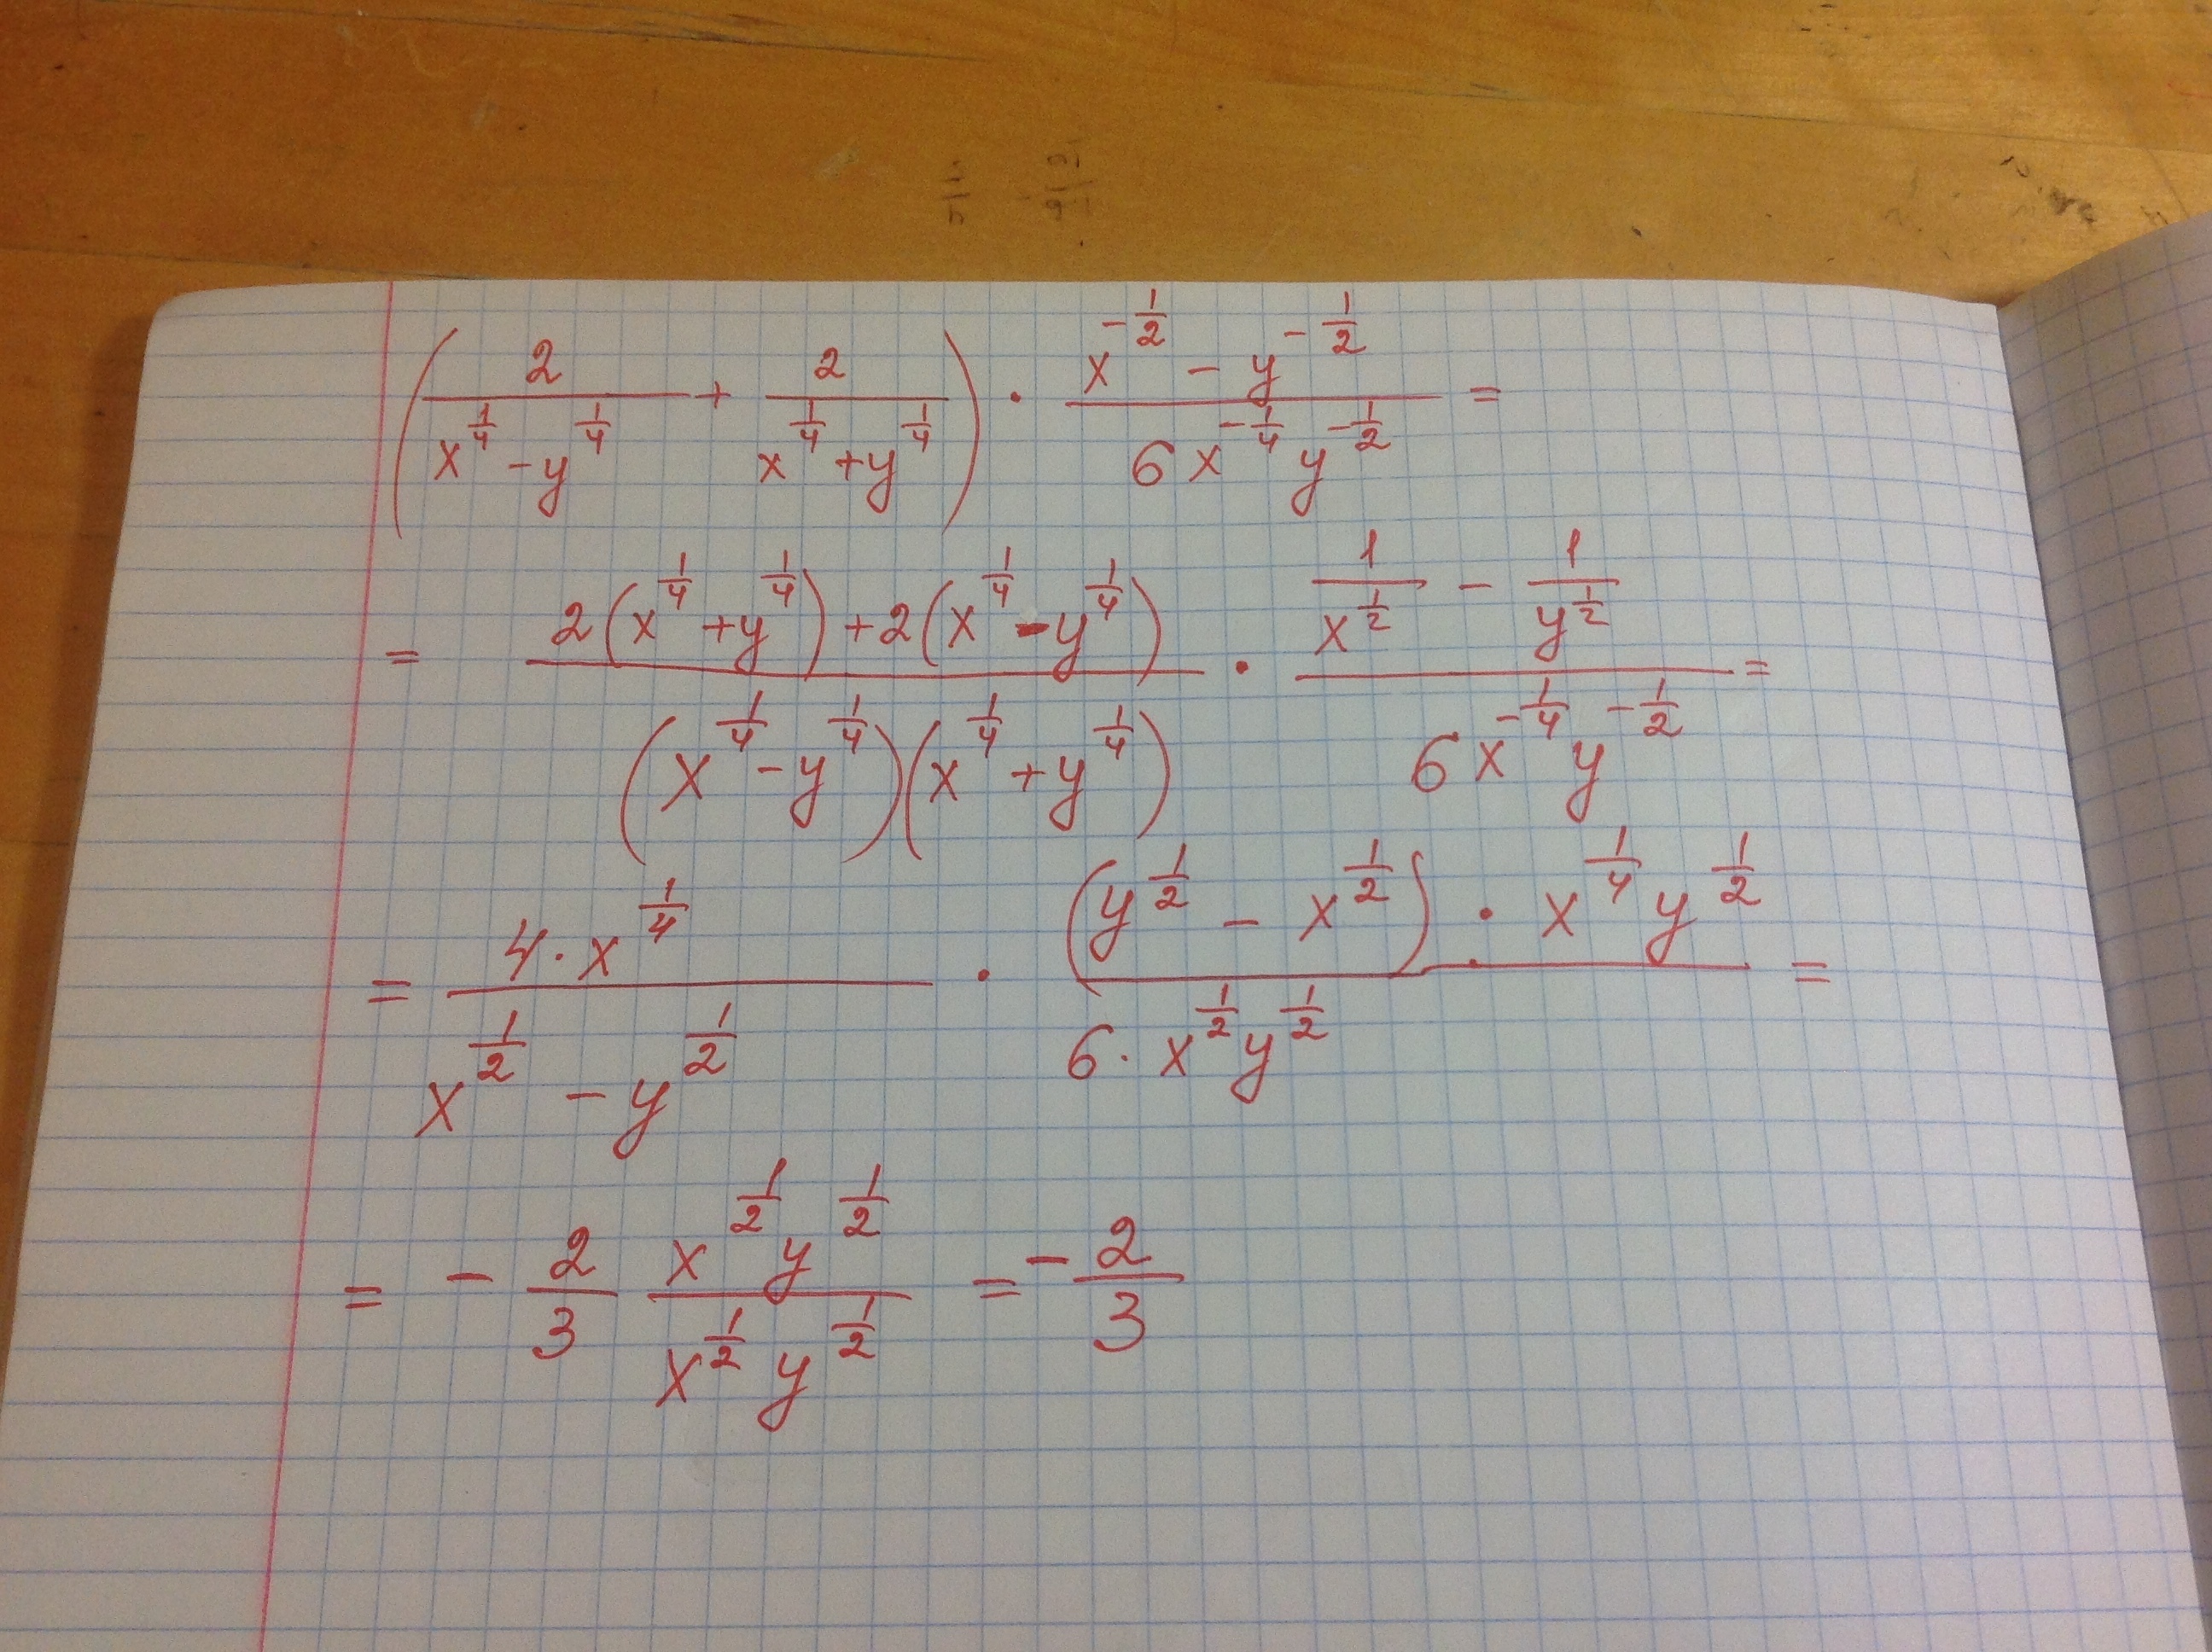 (2/(x^(1/4) - y^(1/4)) + 2/(x^(1/4) + y^(1/4))) · (x^(-1/2) - y^(-1/2))/(6x^(-1/4) y^(-1/2)) =
= (2(x^(1/4) + y^(1/4)) + 2(x^(1/4) - y^(1/4)))/((x^(1/4) - y^(1/4))(x^(1/4) + y^(1/4))) · (1/x^(1/2) - 1/y^(1/2))/(6x^(-1/4) y^(-1/2)) =
= (4 · x^(1/4))/(x^(1/2) - y^(1/2)) · ((y^(1/2) - x^(1/2)) · x^(1/4) y^(1/2))/(6 · x^(1/2) y^(1/2)) =
= - 2/3 (x^(1/2) y^(1/2))/(x^(1/2) y^(1/2)) = - 2/3